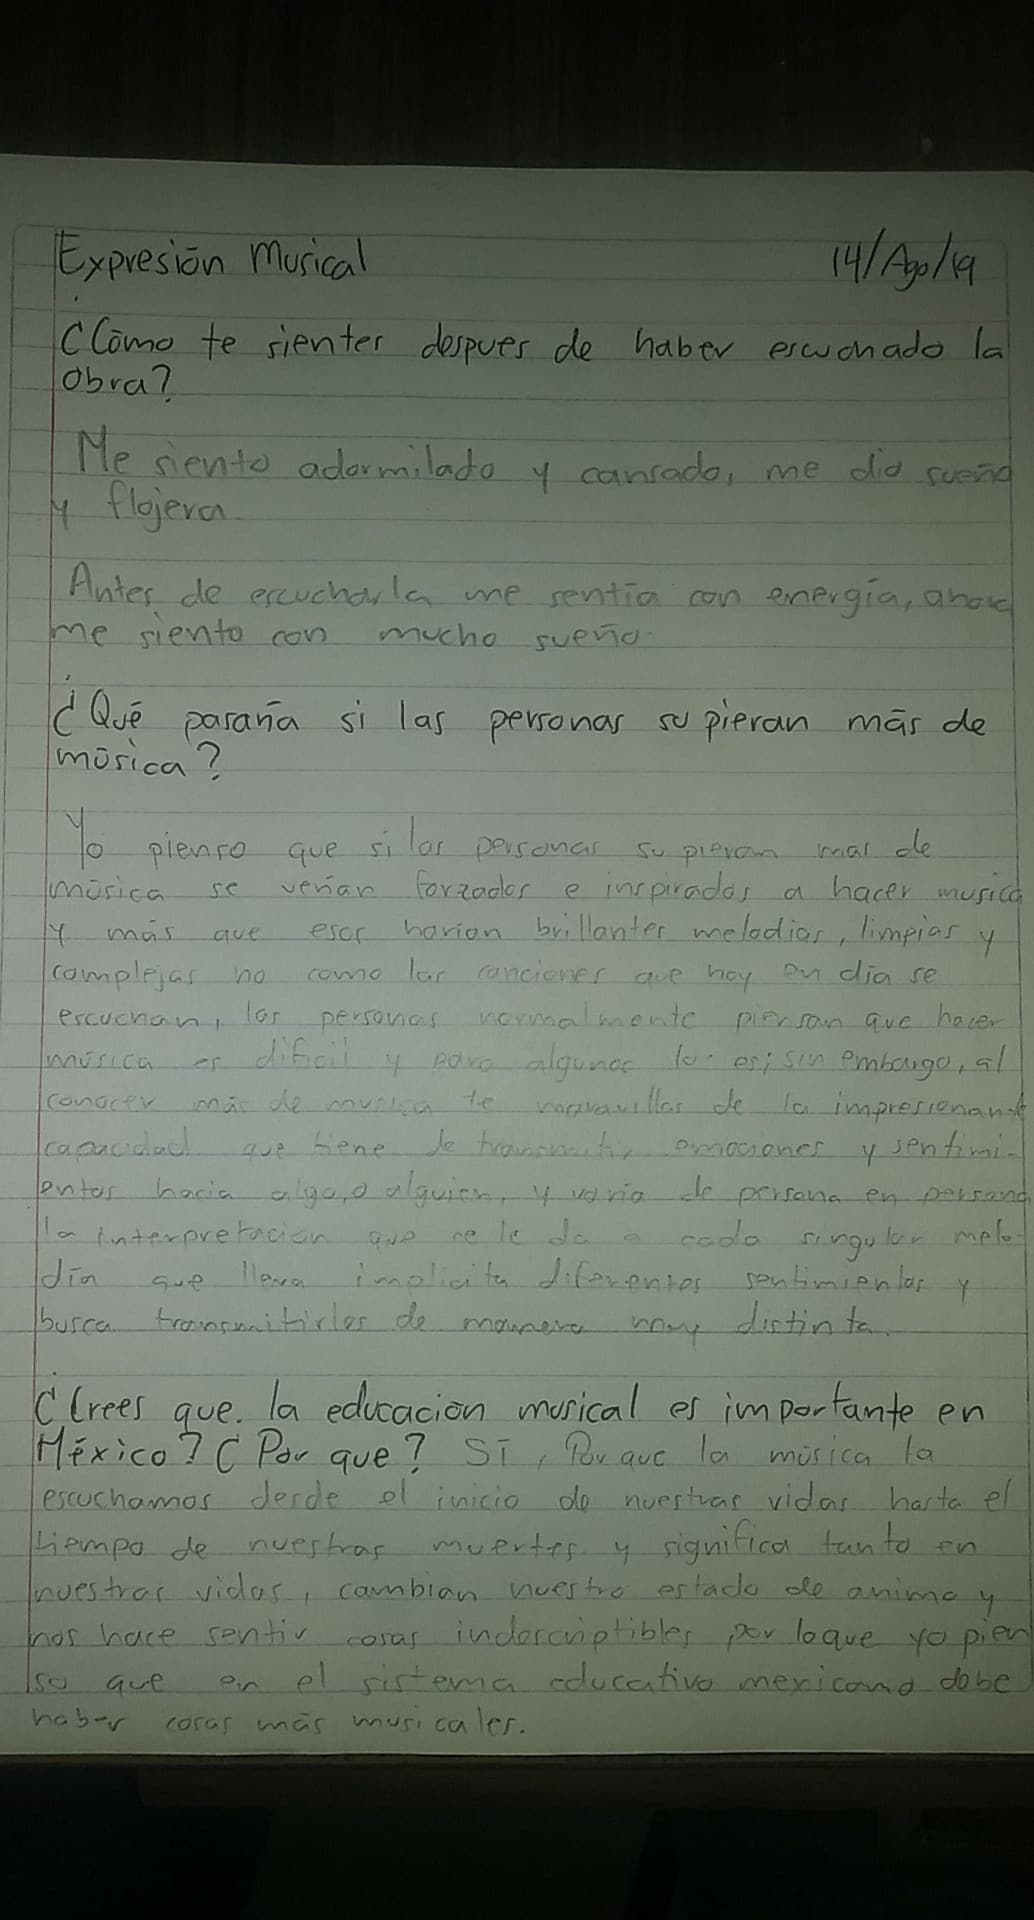 Expresión Musical 14/Ago/19
¿Cómo te sientes despues de haber escuchado la
obra?
Me siento adormilado y cansado, me dio sueño
y flojera.
Antes de escucharla me sentía con energía, ahora
me siento con mucho sueño.
¿Qué pasaría si las personas supieran más de
música?
Yo pienso que si las personas supieran mas de
música se verían forzados e inspirados a hacer musica
y más que eso harian brillantes melodias, limpias y
complejas no como las canciones que hoy en dia se
escuchan, las personas normalmente piensan que hacer
música es dificil y para algunos lo es; sin embargo, al
conocer más de musica te maravillas de la impresionante
capacidad que tiene de transmitir emociones y sentimi-
entos hacia algo, o alguien, y varia de persona en persona
la interpretacion que se le da a cada singular melo-
día que lleva implicita diferentes sentimientos y
busca transmitirles de manera muy distinta.
¿Crees que la educación musical es importante en
México? ¿Por que? Sí, Por que la música la
escuchamos desde el inicio de nuestras vidas hasta el
tiempo de nuestras muertes y significa tanto en
nuestras vidas, cambian nuestro estado de animo y
nos hace sentir cosas indescriptibles, por loque yo pien
so que en el sistema educativo mexicano debe
haber cosas más musicales.